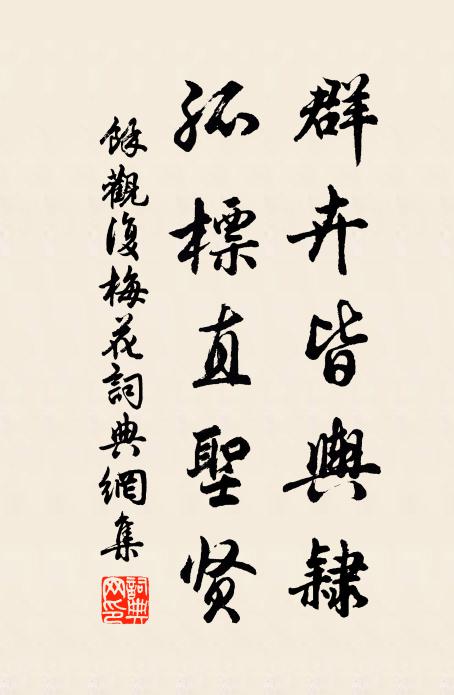 群卉皆輿隸
孤標直聖贤
餘觀復梅花詞典網集
詞典
网印